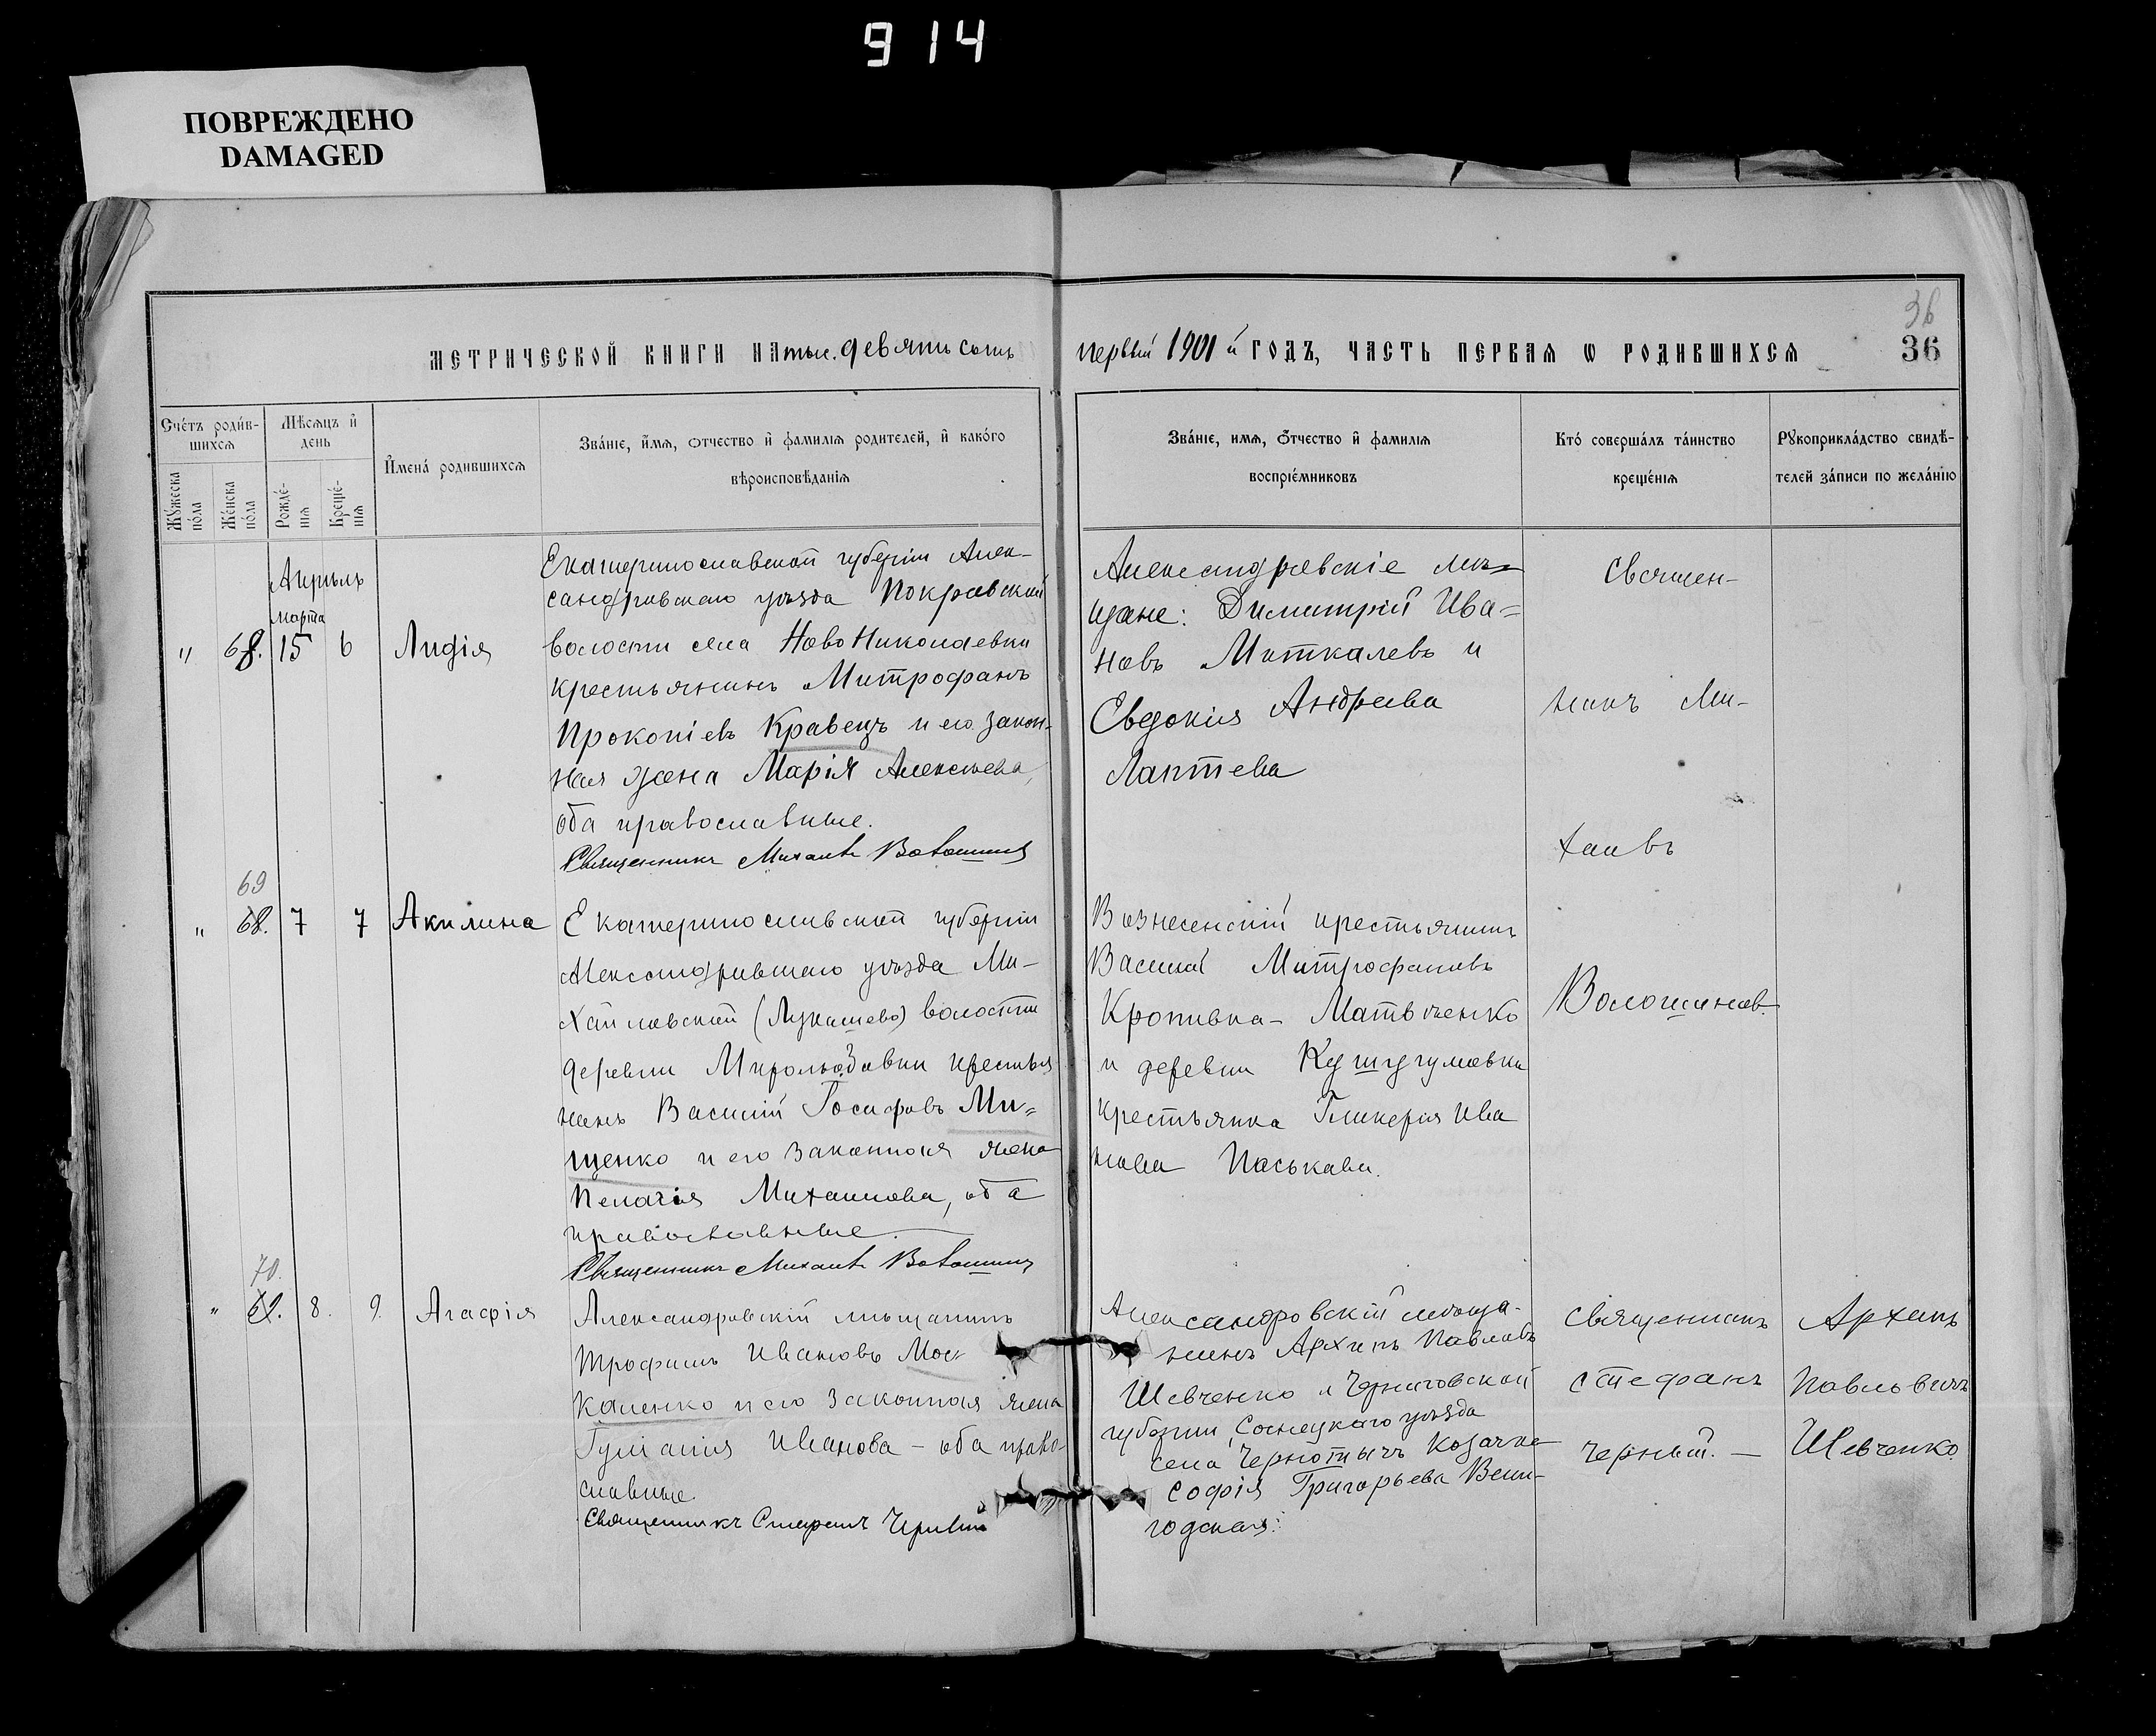 914
ПОВРЕЖДЕНО
DAMAGED
36
МЕТРИЧЕСКОЙ КНИГИ НА тыс. девятьсотъ первый 1901 й ГОДЪ, ЧАСТЬ ПЕРВАЯ Ѡ РОДИВШИХСЯ 36
Счетъ родив-
шихся
Мѣсяцъ и
день
Мужеска
пола
Женска
пола
Рожде-
нія
Креще-
нія
Имена родившихся
Званіе, имя, отчество и фамилія родителей, и какого
вѣроисповѣданія
Званіе, имя, отчество и фамилія
воспріемниковъ
Кто совершалъ таинство
крещенія
Рукоприкладство свидѣ-
телей записи по желанію
Апрель
марта
" 68. 15 6 Лидія
Екатеринославской губерніи Алек-
сандровскаго уѣзда Покровской
волости села Ново Николаевки
крестьянинъ Митрофанъ
Прокопіевъ Кравецъ и его закон-
ная жена Марія Алексѣева,
оба православные.
Священникъ Михаилъ Волошинъ
Александровскіе мѣ=
щане: Димитрій Ива=
новъ Миткалевъ и
Евдокія Андреева
Лаптева
Священ-
никъ Ми-
хаилъ
Волошиновъ
69
" 68. 7 7 Акилина
Екатеринославской губерніи
Александровскаго уѣзда Ми-
хайловской (Лукашево) волости
деревни Миролюбовки крестья
нинъ Василій Іосифовъ Ми=
щенко и его законная жена
Пелагія Михаилова, оба
православные.
Священникъ Михаилъ Волошинъ
Вознесенскій крестьянинъ
Василій Митрофановъ
Кропивка- Матвіенко
и деревни Кушугумовки
крестьянка Гликерія Ива
нова Паськова.
70.
" 69. 8. 9. Агафія
Александровскій мѣщанинъ
Трофимъ Ивановъ Мос-
каленко и его законная жена
Іуліанія Иванова - оба право-
славные.
Священникъ Стефанъ Черный
Александровскій мѣща-
нинъ Архипъ Павловъ
Шевченко и Черниговской
губерніи, Сосницкаго уѣзда
села Чернотычъ козачка
Софія Григорьева Вели-
годская.
Священникъ
Стефанъ
Черный. —
Архипъ
Павловичъ
Шевченко